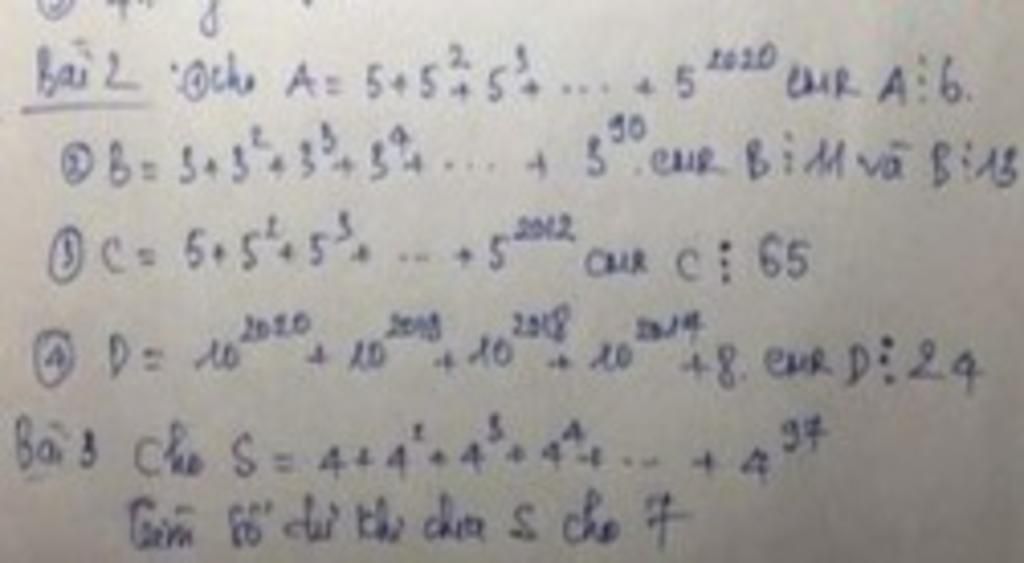 Bài 2 : ① Cho A = 5 + 5² + 5³ + .... + 5²⁰²⁰ CMR A ⋮ 6.
② B = 3 + 3² + 3³ + 3⁴ + .... + 3⁹⁰. CMR B ⋮ 11 và B ⋮ 13
③ C = 5 + 5² + 5³ + ... + 5²⁰¹² CMR C ⋮ 65
④ D = 10²⁰²⁰ + 10²⁰¹⁹ + 10²⁰¹⁸ + 10²⁰¹⁷ + 8. CMR D ⋮ 24
Bài 3 Cho S = 4 + 4² + 4³ + 4⁴ + ... + 4⁹⁷
Tìm số dư khi chia S cho 7